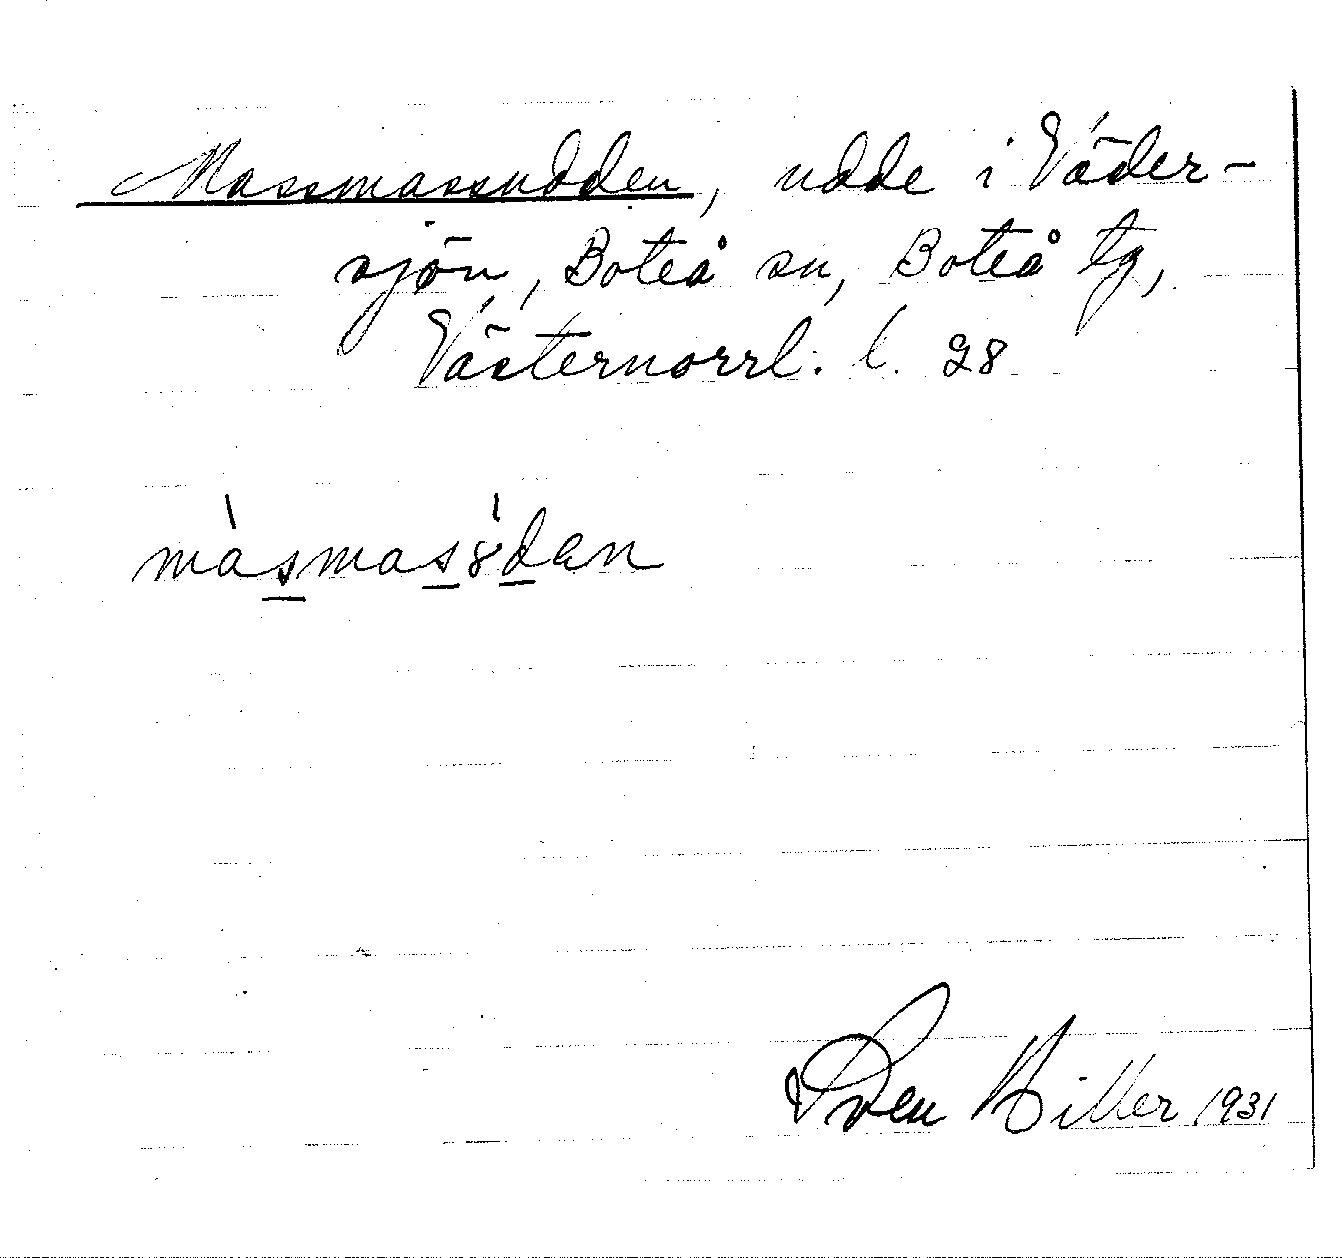 Massmassudden, udde i Väder-
sjön, Boteå sn, Boteå tg,
Västernorrl. l. 28
màsmasȣ̀dan
Sven Hiller 1931